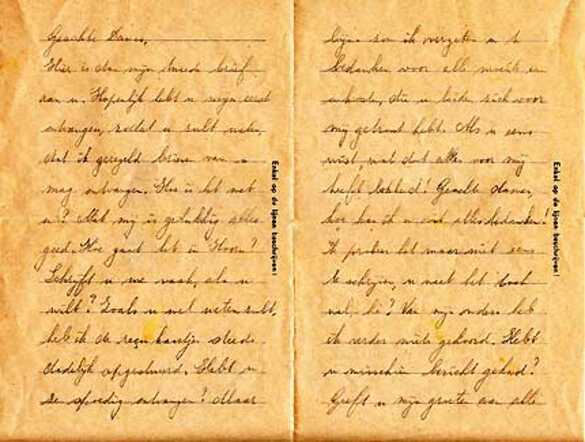 Geachte Dames,
Hier is dan mijn tweede brief
aan u. Hopelijk hebt u mijn eerst
ontvangen, zodat u zult weten,
dat ik geregeld brieven van u
mag ontvangen. Hoe is het met
u? Met mij is gelukkig alles
goed. Hoe gaat het in Hoorn?
Schrijft u me vaak, als u
wilt? Zoals u wel weten zult,
heb ik de kaartje steeds
dadelijk opgestuurd. Hebt u
ze spoedig ontvangen? Maar
Enkel op de lijnen beschrijven!
bijna zou ik vergeten u te
bedanken voor alle moeite en
onkosten, die u beiden zich voor
mij getroost hebt. Als u eens
wist wat dat alles voor mij
heeft betekend! Geachte dames,
hoe kan ik u ooit alles bedanken!
Ik probeer het maar niet eens
te schrijven, u weet het toch
wel, hè? Van mijn ouders heb
ik verder niets gehoord. Hebt
u misschien bericht gehad?
Geeft u mijn groeten aan alle
Enkel op de lijnen beschrijven!